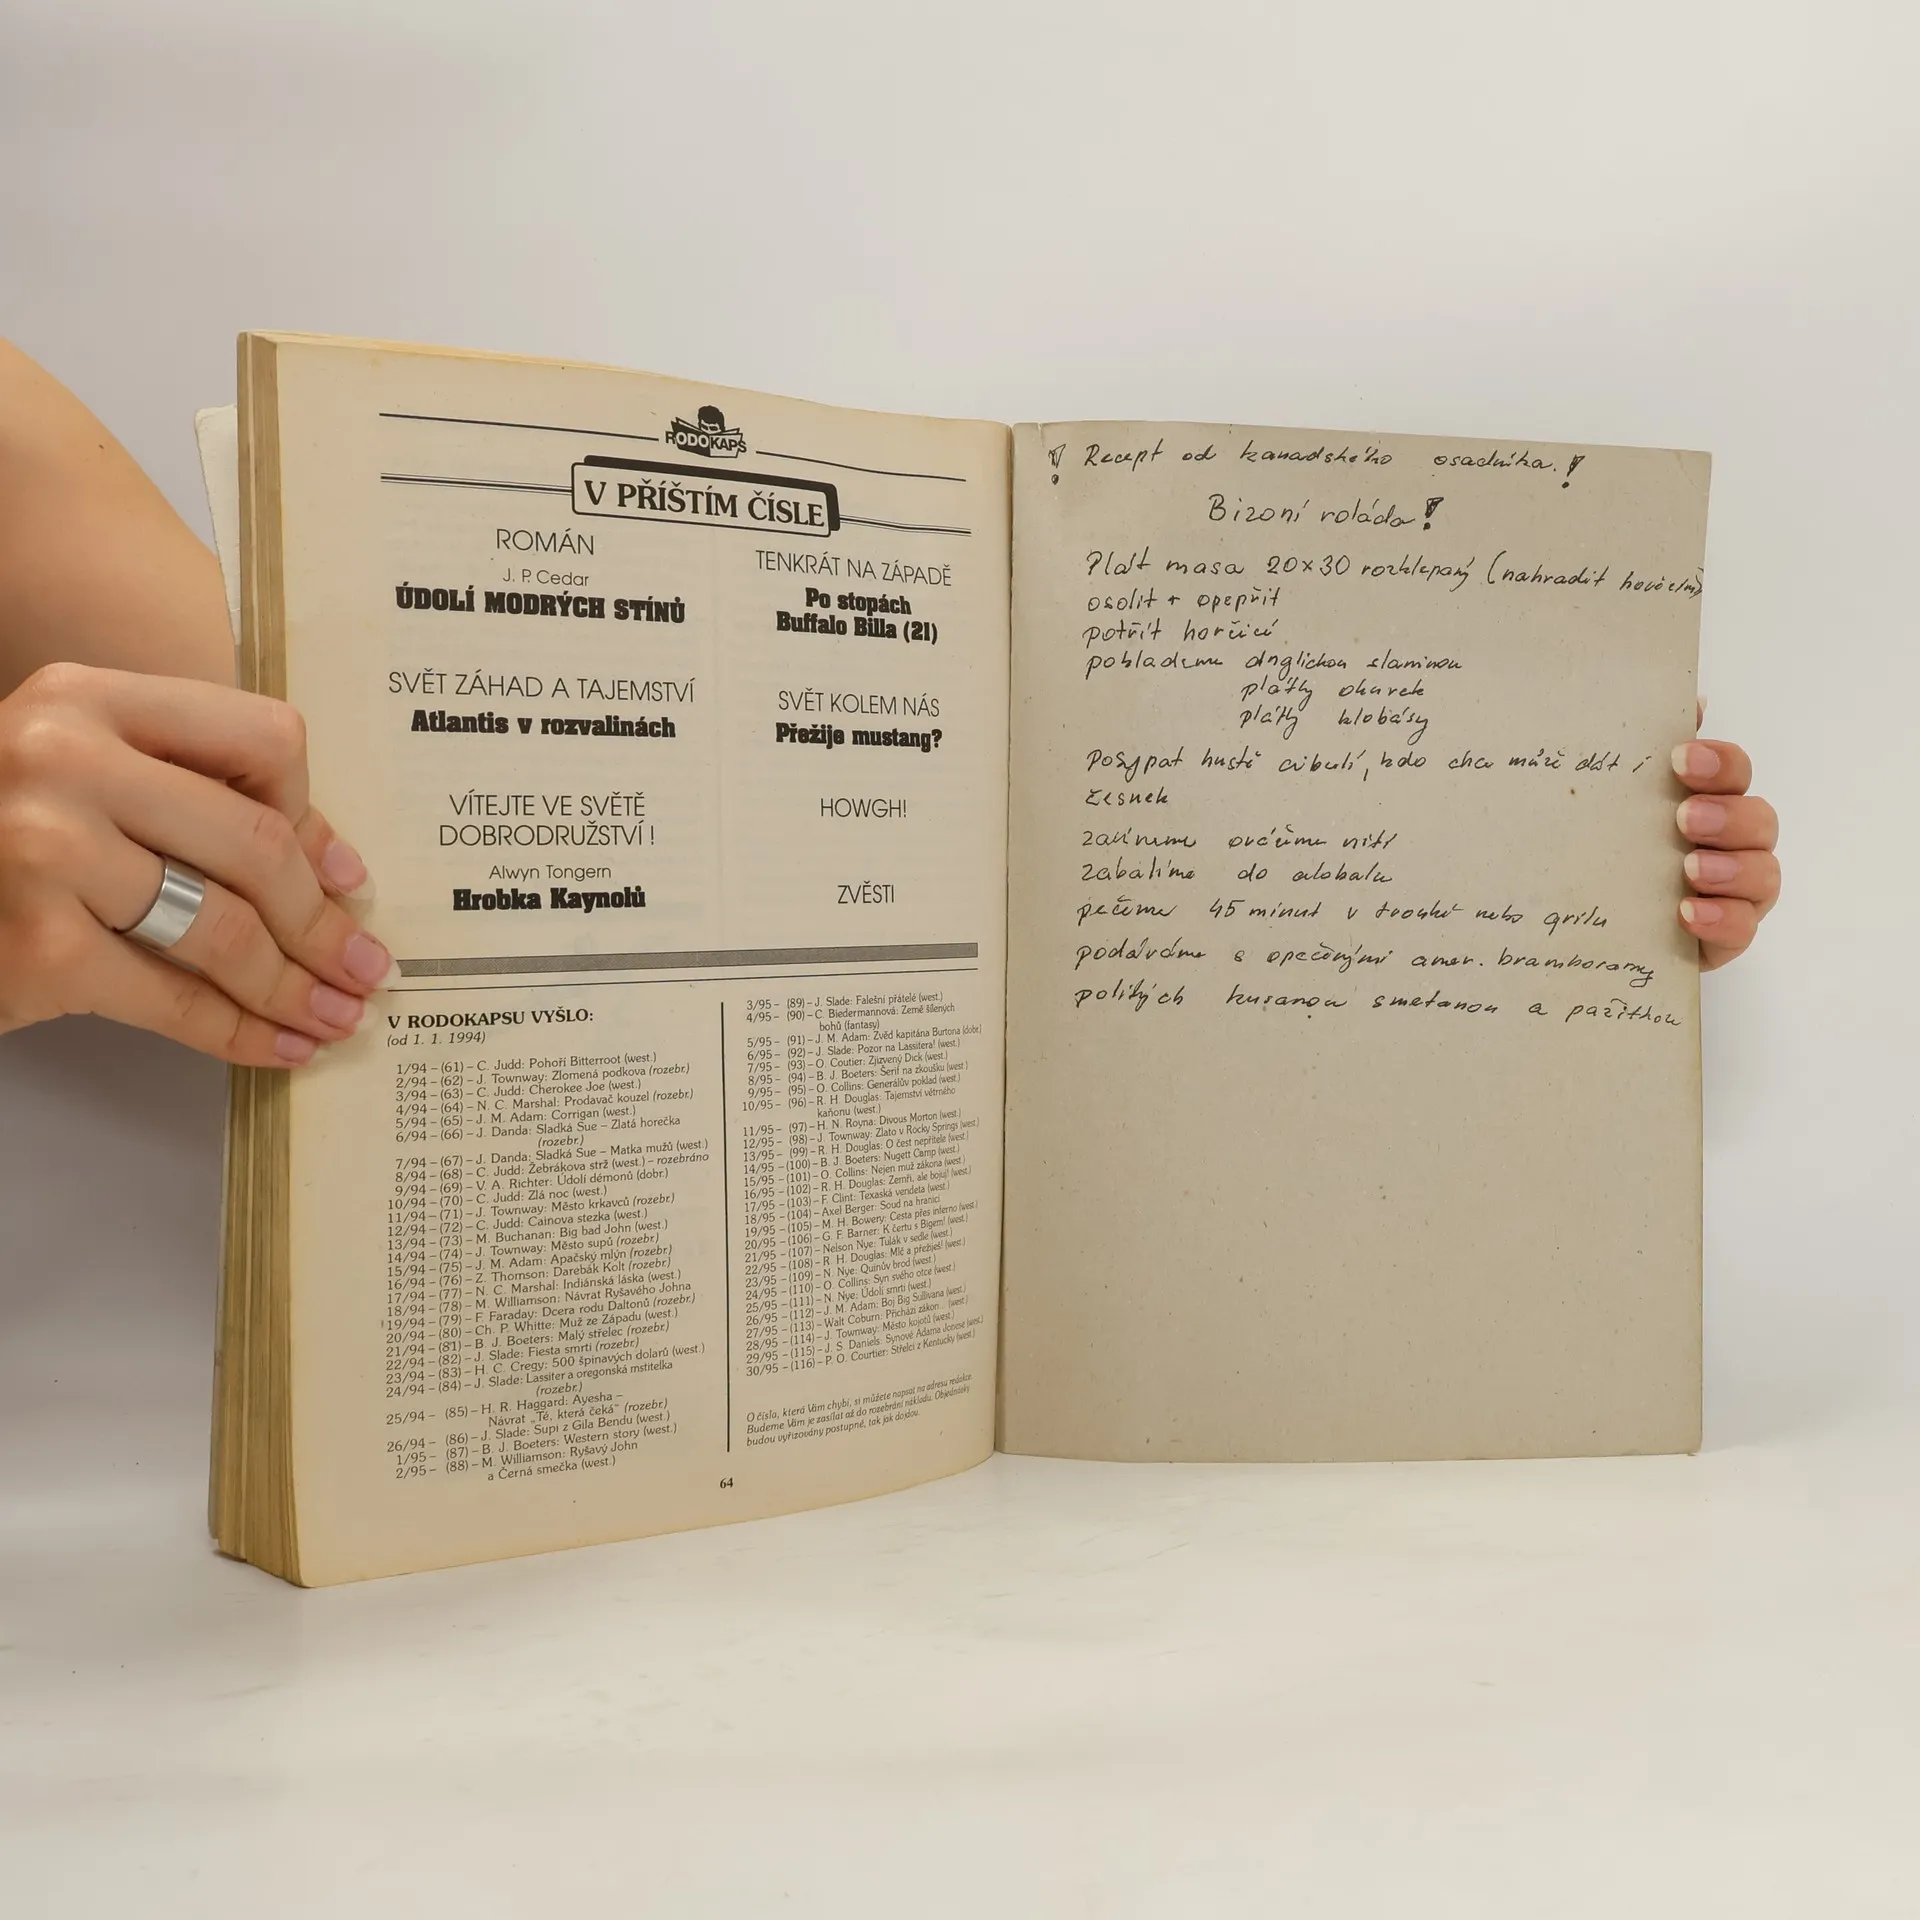 RODOKAPS
V PŘÍŠTÍM ČÍSLE
ROMÁN
J. P. Cedar
ÚDOLÍ MODRÝCH STÍNŮ
SVĚT ZÁHAD A TAJEMSTVÍ
Atlantis v rozvalinách
VÍTEJTE VE SVĚTĚ
DOBRODRUŽSTVÍ !
Alwyn Tongern
Hrobka Kaynolů
TENKRÁT NA ZÁPADĚ
Po stopách
Buffalo Billa (21)
SVĚT KOLEM NÁS
Přežije mustang?
HOWGH!
ZVĚSTI
V RODOKAPSU VYŠLO:
(od 1. 1. 1994)
1/94 – (61) – C. Judd: Pohoří Bitterroot (west.)
2/94 – (62) – J. Townway: Zlomená podkova (rozebr.)
3/94 – (63) – C. Judd: Cherokee Joe (west.)
4/94 – (64) – N. C. Marshal: Prodavač kouzel (rozebr.)
5/94 – (65) – J. M. Adam: Corrigan (west.)
6/94 – (66) – J. Danda: Sladká Sue – Zlatá horečka
(rozebr.)
7/94 – (67) – J. Danda: Sladká Sue – Matka mužů (west.)
8/94 – (68) – C. Judd: Žebrákova strž (west.) – rozebráno
9/94 – (69) – V. A. Richter: Údolí démonů (dobr.)
10/94 – (70) – C. Judd: Zlá noc (west.)
11/94 – (71) – J. Townway: Město krkavců (rozebr.)
12/94 – (72) – C. Judd: Cainova stezka (west.)
13/94 – (73) – M. Buchanan: Big bad John (west.)
14/94 – (74) – J. Townway: Město supů (rozebr.)
15/94 – (75) – J. M. Adam: Apačský mlýn (rozebr.)
16/94 – (76) – Z. Thomson: Darebák Kolt (rozebr.)
17/94 – (77) – N. C. Marshal: Indiánská láska (west.)
18/94 – (78) – M. Williamson: Návrat Ryšavého Johna
19/94 – (79) – F. Faraday: Dcera rodu Daltonů (rozebr.)
20/94 – (80) – Ch. P. Whitte: Muž ze Západu (west.)
21/94 – (81) – B. J. Boeters: Malý střelec (rozebr.)
22/94 – (82) – J. Slade: Fiesta smrti (rozebr.)
23/94 – (83) – H. C. Cregy: 500 špinavých dolarů (west.)
24/94 – (84) – J. Slade: Lassiter a oregonská mstitelka
(rozebr.)
25/94 – (85) – H. R. Haggard: Ayesha –
Návrat „Té, která čeká“ (rozebr.)
26/94 – (86) – J. Slade: Supi z Gila Bendu (west.)
1/95 – (87) – B. J. Boeters: Western story (west.)
2/95 – (88) – M. Williamson: Ryšavý John
a Černá smečka (west.)
3/95 – (89) – J. Slade: Falešní přátelé (west.)
4/95 – (90) – C. Biedermannová: Země šílených
bohů (fantasy)
5/95 – (91) – J. M. Adam: Zvěd kapitána Burtona (dobr.)
6/95 – (92) – J. Slade: Pozor na Lassitera! (west.)
7/95 – (93) – O. Coutier: Zjizvený Dick (west.)
8/95 – (94) – B. J. Boeters: Šerif na zkoušku (west.)
9/95 – (95) – O. Collins: Generálův poklad (west.)
10/95 – (96) – R. H. Douglas: Tajemství větrného
kaňonu (west.)
11/95 – (97) – H. N. Royna: Divous Morton (west.)
12/95 – (98) – J. Townway: Zlato v Rocky Springs (west.)
13/95 – (99) – R. H. Douglas: O čest nepřítele (west.)
14/95 – (100) – B. J. Boeters: Nugett Camp (west.)
15/95 – (101) – O. Collins: Nejen muž zákona (west.)
16/95 – (102) – R. H. Douglas: Zemři, ale bojuj! (west.)
17/95 – (103) – F. Clint: Texaská vendeta (west.)
18/95 – (104) – Axel Berger: Soud na hranici
19/95 – (105) – M. H. Bowery: Cesta přes inferno (west.)
20/95 – (106) – G. F. Barner: K čertu s Bigem! (west.)
21/95 – (107) – Nelson Nye: Tulák v sedle (west.)
22/95 – (108) – R. H. Douglas: Mlč a přežiješ! (west.)
23/95 – (109) – N. Nye: Quinův brod (west.)
24/95 – (110) – O. Collins: Syn svého otce (west.)
25/95 – (111) – N. Nye: Údolí smrti (west.)
26/95 – (112) – J. M. Adam: Boj Big Sullivana (west.)
27/95 – (113) – Walt Coburn: Přichází zákon... (west.)
28/95 – (114) – J. Townway: Město kojotů (west.)
29/95 – (115) – J. S. Daniels: Synové Adama Jonese (west.)
30/95 – (116) – P. O. Courtier: Střelci z Kentucky (west.)
O čísla, která Vám chybí, si můžete napsat na adresu redakce.
Budeme Vám je zasílat až do rozebrání nákladu. Objednávky
budou vyřizovány postupně, tak jak dojdou.
64
! Recept od kanadského osadníka. !
Bizoní roláda!
Plát masa 20x30 rozklepaný (nahradit hovězím)
osolit + opepřit
potřít hořčicí
poklademe anglickou slaninou
plátky okurek
plátky klobásy
Posypat hustě cibulí, kdo chce může dát i
česnek
zavineme ovážeme nití
zabalíme do alobalu
pečeme 45 minut v troubě nebo grilu
podáváme s opečenými amer. bramborami
politých kysanou smetanou a pažitkou